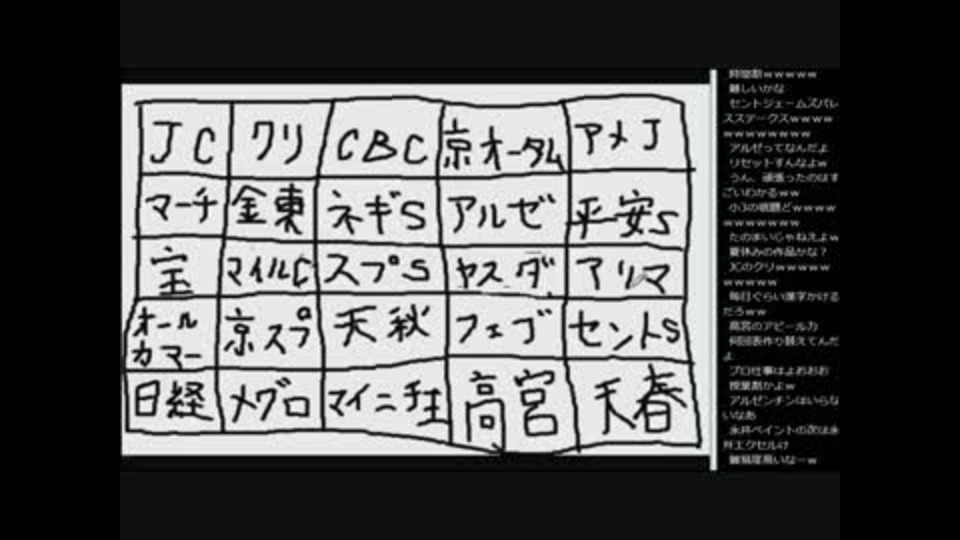 JC クリ CBC 京オータム アメJ
マーチ 金東 ネギS アルゼ 平安S
宝 マイルC スプS ヤスダ アリマ
オールカマー 京スプ 天秋 フェブ セントS
日経 メグロ マイニチ王 高宮 天春
時間割wwwww
難しいかな
セントジェームズパレ
スステークスwwww
wwwwwwww
アルゼってなんだよ
リセットすんなよw
うん、頑張ったのはす
ごいわかるww
wwwwwww
たのまいじゃねえよw
夏休みの作品かな？
JCのクリwwwww
wwwww
毎日ぐらい漢字かける
だろww
高宮のアピール力
何回表作り替えてんだ
よ
プロ仕事はよおおお
授業割かよw
アルゼンチンはいらな
いなあ
永井ペイントの次は永
井エクセルけ
難易度高いなーw